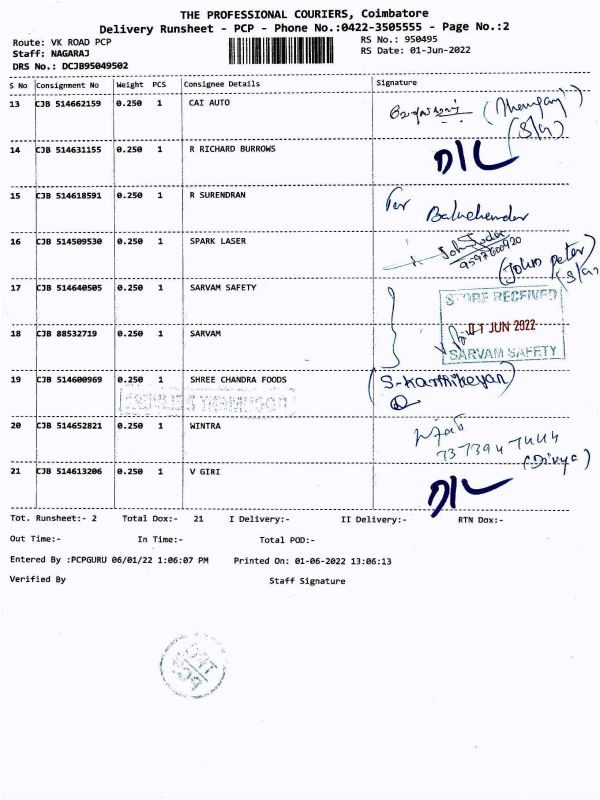 THE PROFESSIONAL COURIERS, Coimbatore
Delivery Runsheet - PCP - Phone No.:0422-3505555 - Page No.:2
Route: VK ROAD PCP RS No.: 950495
Staff: NAGARAJ RS Date: 01-Jun-2022
DRS No.: DCJB95049502
S No Consignment No Weight PCS Consignee Details Signature
13 CJB 514662159 0.250 1 CAI AUTO
(S/g)
14 CJB 514631155 0.250 1 R RICHARD BURROWS D/L
15 CJB 514618591 0.250 1 R SURENDRAN For
16 CJB 514509530 0.250 1 SPARK LASER
(John peter)
(S/g)
17 CJB 514640505 0.250 1 SARVAM SAFETY STORE RECEIVED
01 JUN 2022
18 CJB 88532719 0.250 1 SARVAM
SARVAM SAFETY
19 CJB 514600969 0.250 1 SHREE CHANDRA FOODS (S-Karthikeyan)
20 CJB 514652821 0.250 1 WINTRA
(Divya)
21 CJB 514613206 0.250 1 V GIRI D/L
Tot. Runsheet:- 2 Total Dox:- 21 I Delivery:- II Delivery:- RTN Dox:-
Out Time:- In Time:- Total POD:-
Entered By :PCPGURU 06/01/22 1:06:07 PM Printed On: 01-06-2022 13:06:13
Verified By Staff Signature